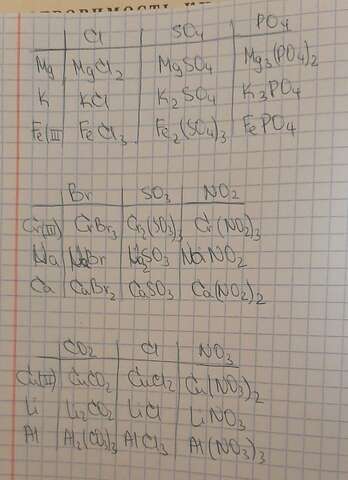 Cl SO4 PO4
Mg MgCl2 MgSO4 Mg3(PO4)2
K KCl K2SO4 K3PO4
Fe(III) FeCl3 Fe2(SO4)3 FePO4
Br SO3 NO2
Cr(III) CrBr3 Cr2(SO3)3 Cr(NO2)3
Na NaBr Na2SO3 NaNO2
Ca CaBr2 CaSO3 Ca(NO2)2
CO2 Cl NO3
Cu(II) CuCO2 CuCl2 Cu(NO3)2
Li Li2CO2 LiCl LiNO3
Al Al2(CO2)3 AlCl3 Al(NO3)3